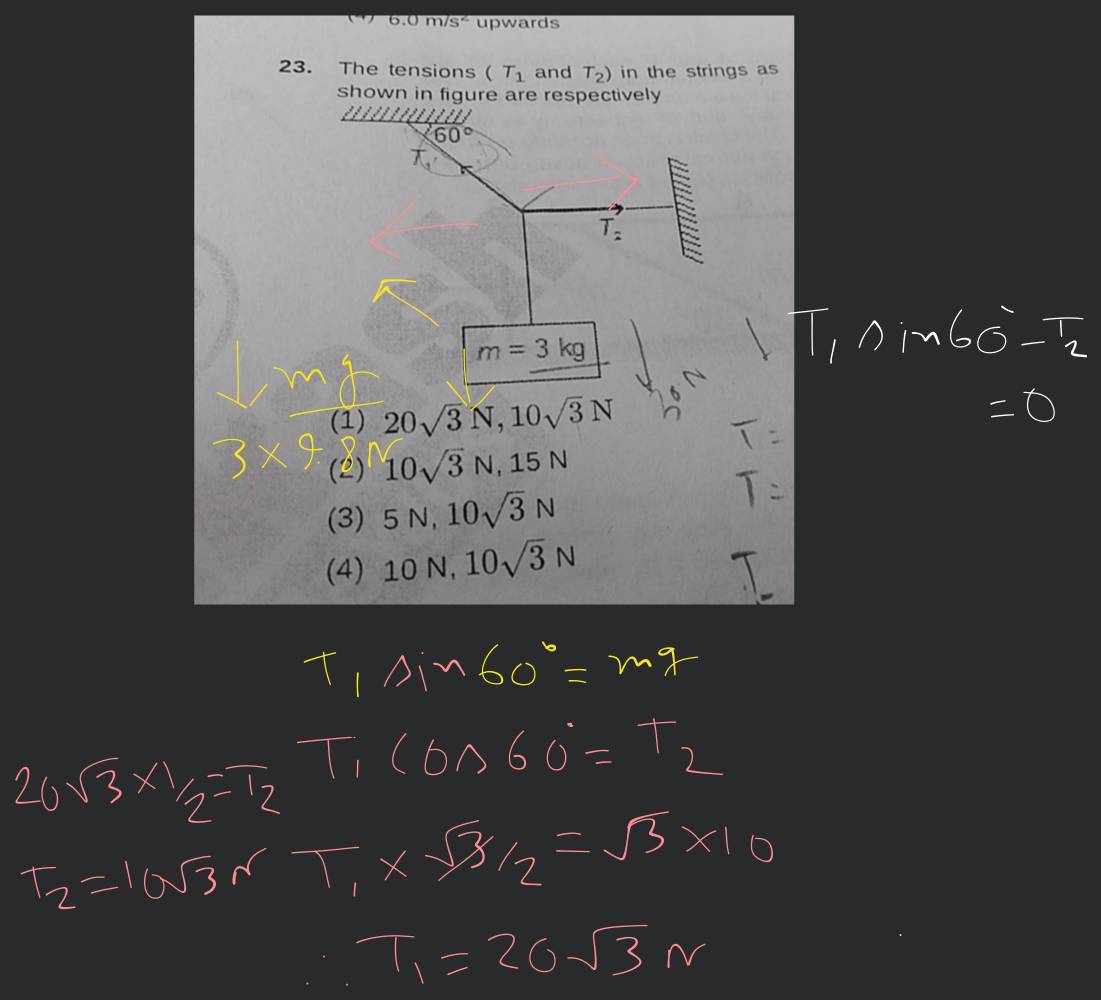 (4) 6.0 m/s² upwards
23. The tensions ( T₁ and T₂) in the strings as
shown in figure are respectively
60°
T₁
T₂
m = 3 kg
30 N
mg
3 × 9.8 N
(1) 20√3 N, 10√3 N
(2) 10√3 N, 15 N
(3) 5 N, 10√3 N
(4) 10 N, 10√3 N
T₁ sin60° - T₂
= 0
T =
T =
T
T₁ sin 60° = mg
T₁ cos 60° = T₂
20√3 × 1/2 = T₂
T₁ × √3/2 = √3 × 10
T₂ = 10√3 N
∴ T₁ = 20√3 N